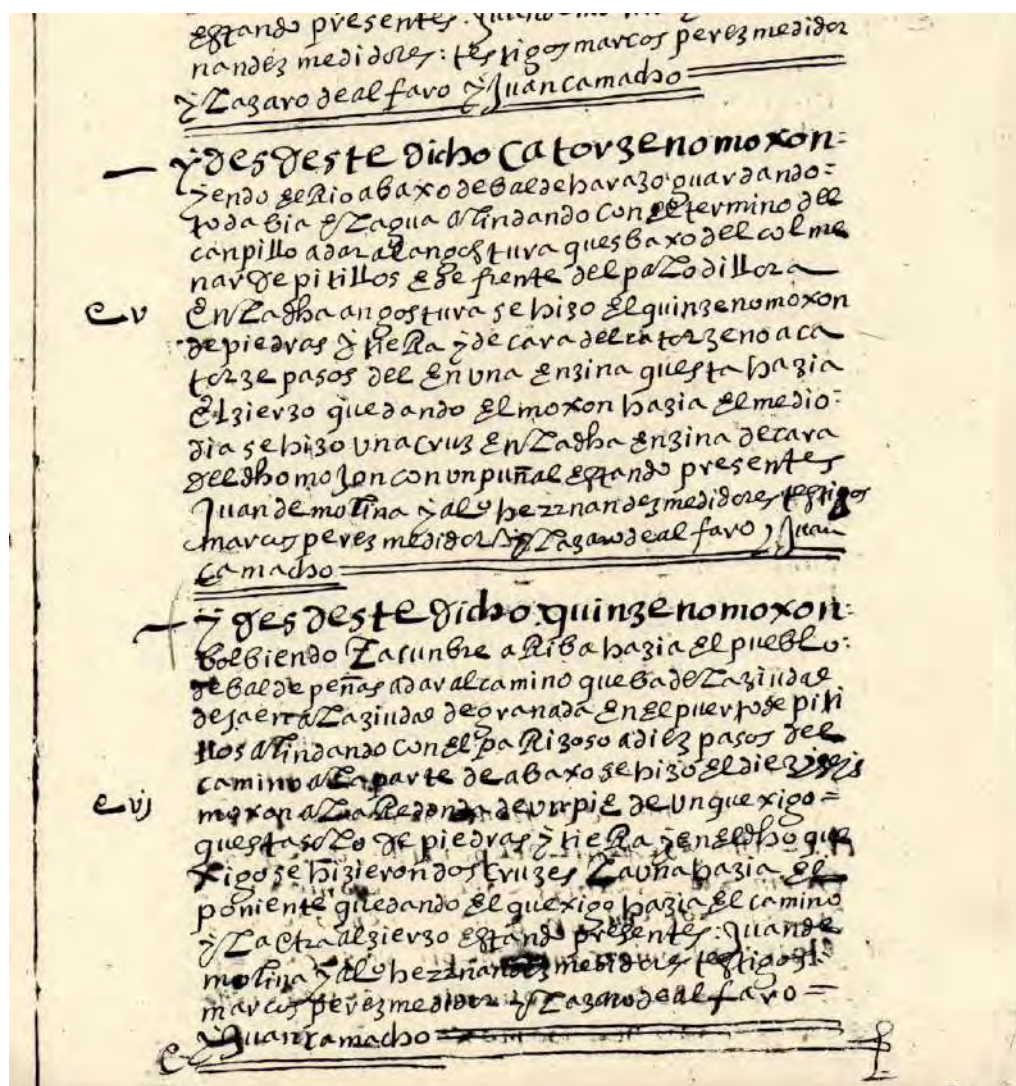 estando presentes: Juan de mo
nandez medidores: testigos marcos perez medidor
y Lazaro de alfaro y Juan camacho
y desdeste dicho catorzeno moxon:
yendo el Rio abaxo de baldeharazo guardando:
todabia el agua alindando con el termino del
canpillo a dar al angostura ques baxo del colme
nar de pitillos e de frente del palo dillora
cv
En la dha angostura se hizo el quinzeno moxon
de piedras y tieRa y de cara del catorzeno a ca
torze pasos del en una enzina questa hazia
el zierzo quedando el moxon hazia el medio:
dia se hizo una cruz en la dha enzina de cara
del dho mojon con un puñal estando presentes
Juan de molina y alº hernandez medidores testigos
marcos perez medidor y Lazaro de alfaro y Juan
camacho
y desdeste dicho quinzeno moxon:
bolbiendo la cunbre aRiba hazia el pueblo:
de baldepeñas a dar al camino que ba de la ziudad
de jaen a la ziudad de granada en el puerto de piti
llos alindando con el paRizoso a diez pasos del
camino a la parte de abaxo se hizo el diez y seis
cvj
moxon a la Redonda de un pie de un quexigo =
questa solo de piedras y tieRa y en el dho que
xigo se hizieron dos cruzes La una hazia el
poniente quedando el quexigo hazia el camino
y La otra al zierzo estando presentes: Juan de
molina y alº hernandez medidores testigos:
marcos perez medidor y Lazaro de alfaro =
y Juan camacho